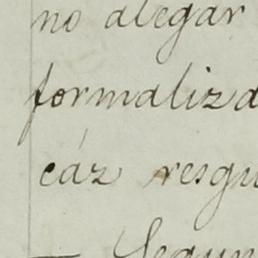 no alegar
formaliza
cáz resgu
Segun